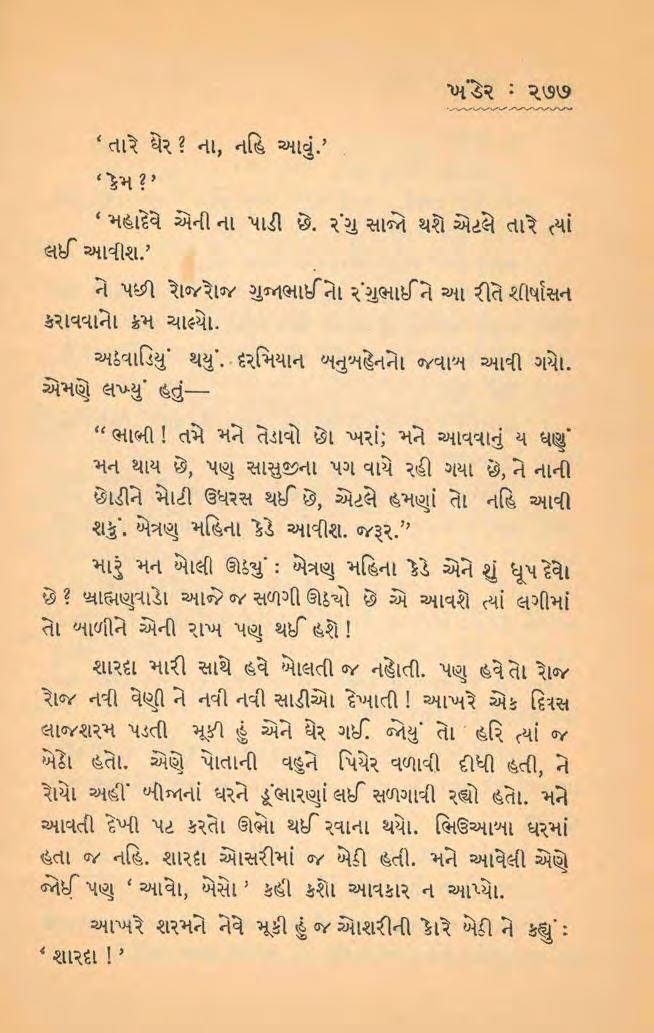 ખંડેર : ૨૭૭
‘ તારે ઘેર ? ના, નહિ આવું.’
‘ કેમ ? ’
‘ મહાદેવે એની ના પાડી છે. રંગુ સાજો થશે એટલે તારે ત્યાં
લઈ આવીશ.’
ને પછી રોજરોજ ગુજાભાઈનો રંગુભાઈને આ રીતે શીર્ષાસન
કરાવવાનો ક્રમ ચાલ્યો.
અઠવાડિયું થયું. દરમિયાન બનુબહેનનો જવાબ આવી ગયો.
એમણે લખ્યું હતું—
“ ભાભી ! તમે મને તેડાવો છો ખરાં; મને આવવાનું ય ઘણું
મન થાય છે, પણ સાસુજીના પગ વાયે રહી ગયા છે, ને નાની
છોડીને મોટી ઉધરસ થઈ છે, એટલે હમણાં તો નહિ આવી
શકું. બેત્રણ મહિના કેડે આવીશ. જરૂર.”
મારું મન બોલી ઊઠ્યું : બેત્રણ મહિના કેડે એને શું ધૂપ દેવો
છે ? બ્રાહ્મણવાડો આજે જ સળગી ઊઠ્યો છે એ આવશે ત્યાં લગીમાં
તો બાળીને એની રાખ પણ થઈ હશે !
શારદા મારી સાથે હવે બોલતી જ નહોતી. પણ હવે તો રોજ
રોજ નવી વેણી ને નવી નવી સાડીઓ દેખાતી ! આખરે એક દિવસ
લાજશરમ પડતી મૂકી હું એને ઘેર ગઈ. જોયું તો હરિ ત્યાં જ
બેઠો હતો. એણે પોતાની વહુને પિયેર વળાવી દીધી હતી, ને
રોયો અહીં બીજાનાં ઘરને ડૂંભારણાં લઈ સળગાવી રહ્યો હતો. મને
આવતી દેખી પટ કરતો ઊભો થઈ રવાના થયો. ભિઉઆબા ઘરમાં
હતા જ નહિ. શારદા ઓસરીમાં જ બેઠી હતી. મને આવેલી એણે
જોઈ પણ ‘ આવો, બેસો ’ કહી કશો આવકાર ન આપ્યો.
આખરે શરમને નેવે મૂકી હું જ ઓશરીની કોરે બેઠી ને કહ્યું :
‘ શારદા ! ’